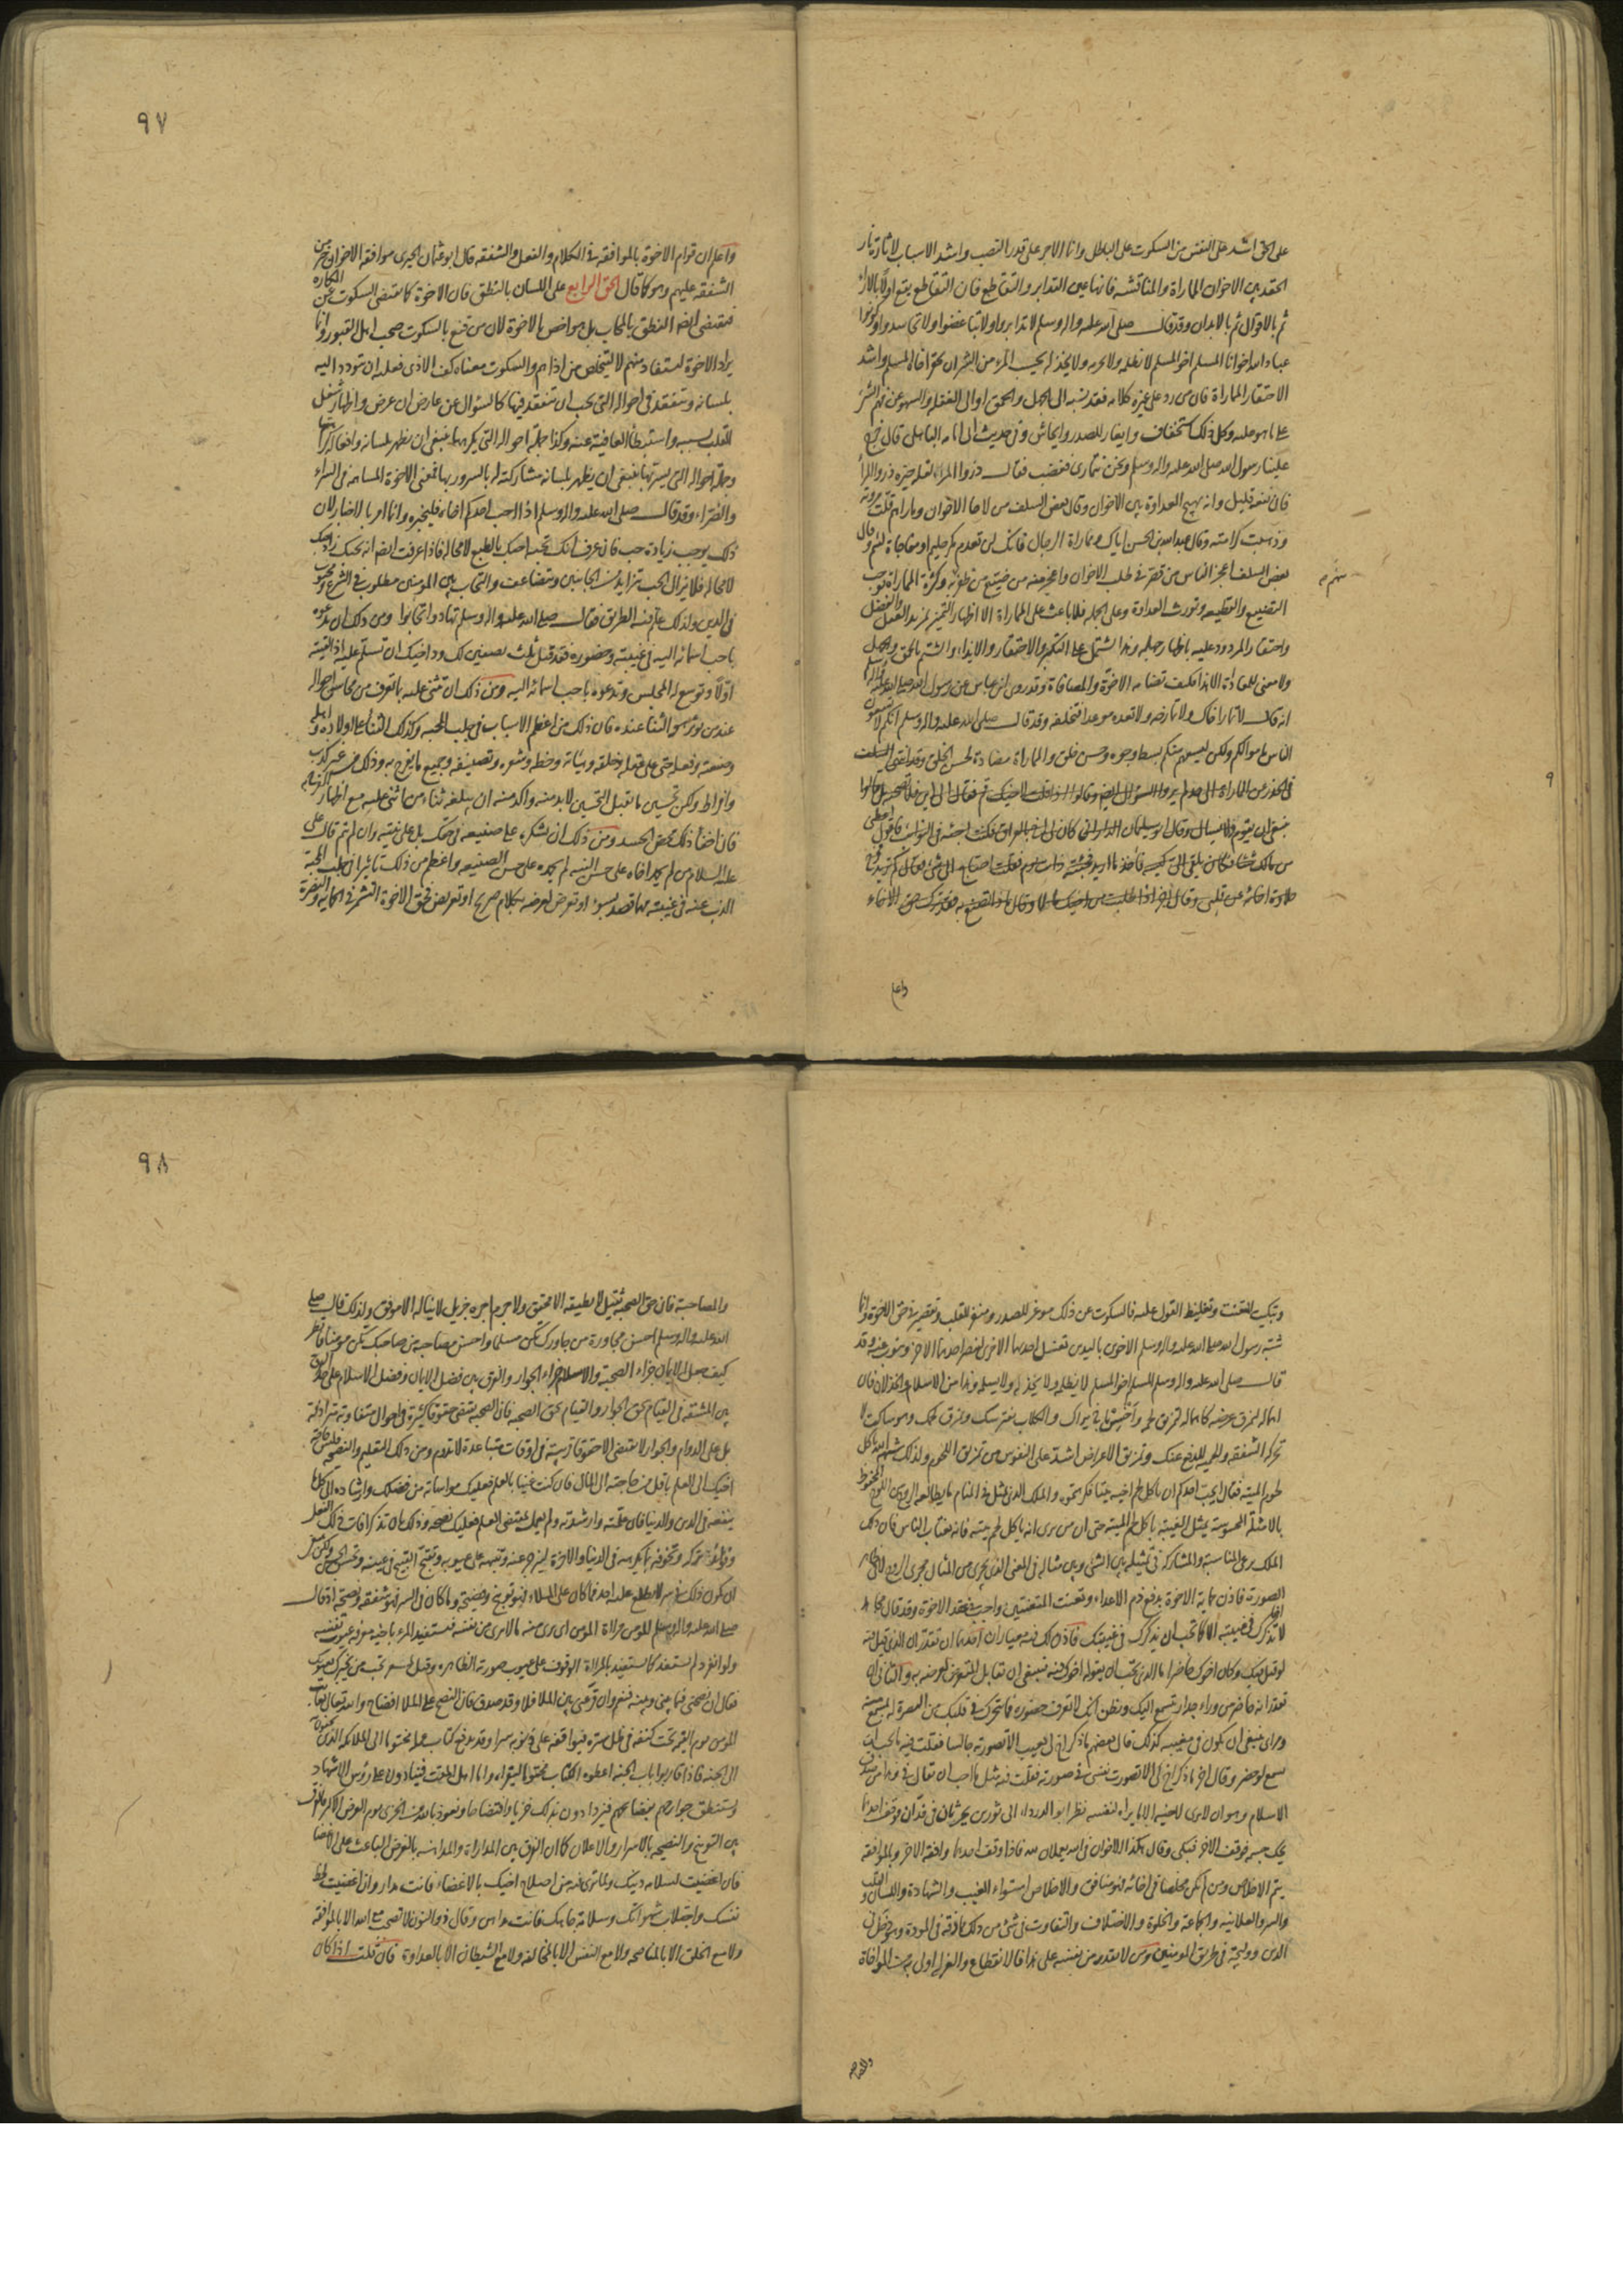 على الحق اشد على النفس من السكوت على الباطل وانما الاجر على قدر النصب واشد الاسباب لاثارة نار
الحقد بين الاخوان المماراة والمناقشة فانها عين التدابر والتقاطع فان التقاطع يقع اولا بالاراء
ثم بالاقوال ثم بالابدان وقد قال صلى الله عليه واله وسلم لا تدابروا ولا تباغضوا ولا تحاسدوا وكونوا
عباد الله اخوانا المسلم اخو المسلم لا يظلمه ولا يحرمه ولا يخذله بحسب المرء من الشر ان يحقر اخاه المسلم واشد
الاحتقار المماراة فان من رد على غيره كلامه فقد نسبه الى الجهل والحمق او الى الغفلة والسهو عن فهم الشئ
على ما هو عليه وكل ذلك استحقار وايغار للصدر وايحاش وفي حديث ابى امامه الباهلى قال خرج
علينا رسول الله صلى الله عليه واله وسلم ونحن نتمارى فغضب فقال ذروا المراء لقلة خيره ذروا المراء
فان نفعه قليل وانه يهيج العداوة بين الاخوان وقال بعض السلف من لاحا الاخوان وماراهم قلت مروته
وذهبت كرامته وقال عبدالله بن الحسن اياك ومماراة الرجال فانك لن تعدم مكر حليم او مفاجاة لئيم وقال
بعض السلف اعجز الناس من قصر في طلب الاخوان واعجز منه من ضيع من ظفر به وكثرة المماراة توجب
التضييع والقطيعه وتورث العداوة وعلى الجملة فلا باعث على المماراة الا اظهار التميز بمزيد العقل والفضل
واحتقار المردود عليه باظهار جهله وهذا يشتمل على التكبر والاحتقار والايذاء والشتم بالحمق والجهل
ولا معنى للمعاداة الا هذا فكيف تضامه الاخوة والمصافاة وقد روى ابن عباس عن رسول الله صلى الله عليه واله وسلم
انه قال لا تمار اخاك ولا تمازحه ولا تعده موعدا فتخلفه وقد قال صلى الله عليه واله وسلم انكم لا تسعون
الناس باموالكم ولكن ليسعهم منكم بسط وجوه وحسن خلق والمماراة مضادة لحسن الخلق وقد انتهى السلف
في الحذر من المماراة الى حد لم يروا السؤال ايضا وقالوا اذا قلت لاخيك قم فقال الى اين فلا تصحبه بل قالوا
ينبغي ان يقوم ولا يسال وقال ابو سليمان الدارانى كان لى اخ بالعراق فكنت اجيئه في النوائب فاقول اعطنى
من مالك شئا فكان يلقى الى كيسه فآخذ ما اريد فجئته ذات يوم فقلت احتاج الى شئ فقال كم تريد فخرج
حلاوة اخائه عن قلبى وقال اخر اذا طلبت من اخيك مالا وقال ماذا تصنع به فقد ترك حق الاخاء
واعلم
٩٧
واعلم ان قوام الاخوة بالموافقة في الكلام والفعل والشفقه قال ابو عثمان الحيرى موافقة الاخوان خير من
الشفقه عليهم وهو كما قال الحق الرابع على اللسان بالنطق فان الاخوة كما تقتضى السكوت عن المكاره
فتقتضى ايضا النطق بالمحاب بل هو اخص بالاخوة لان من قنع بالسكوت صحب اهل القبور وانما
يراد الاخوة ليستفاد منهم لا ليتخلص من اذاهم والسكوت معناه كف الاذى فعليه ان يتودد اليه
بلسانه ويتفقده في احواله التي يحب ان يتفقد فيها كالسؤال عن عارض ان عرض واظهار شغل
القلب بسببه واستبطاء العافية عنه وكذا جملة احواله التي يكرهها ينبغى ان يظهر بلسانه وافعاله كراهتها
وجملة احواله التي يسر بها ينبغى ان يظهر بلسانه مشاركته له بالسرور بها فمعنى الاخوة المساهمه في السراء
والضراء وقد قال صلى الله عليه واله وسلم اذا احب احدكم اخاه فليخبره وانما امر بالاخبار لان
ذلك يوجب زيادة حب فان عرف انك تحبه احبك بالطبع لا محاله فاذا عرفت ايضا انه يحبك زاد حبك
لا محاله فلا يزال الحب يتزايد من الجانبين ويتضاعف والتحاب بين المؤمنين مطلوب في الشرع ومحبوب
في الدين ولذلك علم فيه الطريق فقال صلى الله عليه واله وسلم تهادوا تحابوا ومن ذلك ان تدعوه
باحب اسمائه اليه في غيبته وحضوره فقد قيل ثلث يصفين لك ود اخيك ان تسلم عليه اذا لقيته
اولا وتوسع له المجلس وتدعوه باحب اسمائه اليه ومن ذلك ان تثنى عليه بما تعرف من محاسن احواله
عند من يؤثر هو الثناء عنده فان ذلك من اعظم الاسباب في جلب المحبه وكذلك الثناء على اولاده واهله
وصنعته وفعله حتى على عقله وخلقه وهيئاته وخطه وشعره وتصنيفه وجميع ما يفرح به وذلك من غير كذب
وافراط ولكن تحسين ما يقبل التحسين لا بد منه واكد منه ان تبلغه ثناء من اثنى عليه مع اظهار الفرح به
فان اخفاء ذلك محض الحسد ومن ذلك ان تشكره على صنيعه في حقك بل على نيته وان لم يتم قال على
عليه السلام من لم يحمد اخاه على حسن النيه لم يحمده على حسن الصنيعه واعظم من ذلك تاثيرا في جلب المحبة
الذب عنه في غيبته مهما قصد بسوء او تعرض لعرضه بكلام صريح او تعريض فحق الاخوة التشمر في الحماية والنصرة
وتبكيت المتعنت وتغليظ القول عليه فالسكوت عن ذلك موغر للصدر ومنفر للقلب وتقصير في حق الاخوة وانما
شبه رسول الله صلى الله عليه واله وسلم الاخوين باليدين تغسل احدهما الاخرى لينصر احدهما الاخر وينوب عنه وقد
قال صلى الله عليه واله وسلم المسلم اخو المسلم لا يظلمه ولا يخذله ولا يسلمه وهذا من الاسلام والخذلان فان
اهماله لتمزق عرضه كاهماله لتمزق لحمه واخسس باخ يراك والكلاب تفترسك وتمزق لحمك وهو ساكت لا
تحركه الشفقه والحمية للدفع عنك وتمزيق الاعراض اشد على النفوس من تمزيق اللحوم ولذلك شبهه الله باكل
لحوم الميته فقال ايحب احدكم ان ياكل لحم اخيه ميتا فكرهتموه والملك الذى يمثل في المنام ما يطالعه الروح من اللوح المحفوظ
بالامثلة المحسوسة يمثل الغيبة باكل لحم الميته حتى ان من يرى انه ياكل لحم ميته فانه يغتاب الناس فان ذلك
الملك يرعى المناسبة والمشاركه في تمثيله بين الشئ وبين مثاله في المعنى الذى يجرى من المثال مجرى الروح لا في ظاهر
الصورة فاذن حماية الاخوة بدفع ذم الاعداء وتعنت المتعنتين واجب في عقد الاخوة وقد قال مجاهد
لا تذكر اخاك في غيبته الا كما تحب ان يذكرك في غيبتك فاذن لك فيه معياران احدهما ان تقدر ان الذى قيل فيه
لو قيل فيك وكان اخوك حاضرا ما الذى تحب ان يقوله اخوك فيه فينبغى ان تقابل المتعرض لعرضه به والثانى ان
تقدر انه حاضر من وراء جدار يتسمع اليك ويظن انك لا تعرف حضوره فما يتحرك في قلبك من النصرة له بمسمع منه
ومراى ينبغى ان يكون في مغيبه كذلك قال بعضهم ما ذكر اخ لى بعيب الا تصورته جالسا فقلت فيه ما يحب ان
يسمع لو حضر وقال اخر ما ذكر اخ لى الا تصورت نفسى في صورته فقلت فيه مثل ما احب ان يقال في وهذا من صدق
الاسلام وهو ان لا يرى لاخيه الا ما يراه لنفسه نظر ابو الدرداء الى ثورين يحرثان في فدان وقف احدهما
يحك جسمه فوقف الاخر فبكى وقال هكذا الاخوان في الله يعملان لله فاذا وقف احدهما وافقه الاخر وبالموافقة
يتم الاخلاص ومن لم يكن مخلصا في اخائه فهو منافق والاخلاص استواء الغيب والشهادة واللسان والقلب
والسر والعلانيه والجماعة والخلوة والاختلاف والتفاوت في شئ من ذلك مماذقة في المودة وهو دخل في
الدين ووليجة في طريق المومنين ومن لا يقدر من نفسه على هذا فالانقطاع والعزلة اولى به من المواخاة
والمصاحبه
٩٨
والمصاحبة فان حق الصحبة ثقيل لا يطيقه الا محقق ولا جرم اجره جزيل لا يناله الا موفق ولذلك قال صلى
الله عليه واله وسلم احسن مجاورة من جاورك تكن مسلما واحسن مصاحبة من صاحبك تكن مومنا فانظر
كيف جعل الايمان جزاء الصحبة والاسلام جزاء الجوار والفرق بين فضل الايمان وفضل الاسلام على حد الفرق
بين المشقه في القيام بحق الجوار والقيام بحق الصحبه فان الصحبه تقتضى حقوقا كثيرة في احوال متقاربه مترادفة
بل على الدوام والجوار لا يقتضى الا حقوقا قريبة في اوقات متباعدة لا تدوم ومن ذلك التعليم والنصيحه فليس حاجة
اخيك الى العلم باقل من حاجته الى المال فان كنت غنيا بالعلم فعليك مواساته من فضلك وارشاده الى كل ما
ينفعه في الدين والدنيا فان علمته وارشدته ولم يعمل بمقتضى العلم فعليك نصحه وذلك بان تذكر افات ذلك الفعل
وفوائد تركه وتخوفه بما يكرهه في الدنيا والاخرة لينزجر عنه وتنبهه على عيوبه وتقبح القبيح في عينه وتحسن الحسن ولكن ينبغى
ان يكون ذلك في سر لا يطلع عليه احد فما كان على الملاء فهو توبيخ وفضيحة وما كان في السر فهو شفقه ونصيحة اذ قال
صلى الله عليه واله وسلم المؤمن مراة المومن اى يرى منه ما لا يرى من نفسه فيستفيد المرء باخيه معرفة عيوب نفسه
ولو انفرد لم يستفد كما يستفيد بالمراة الوقوف على عيوب صورته الظاهره وقيل لمسعر تحب من يخبرك بعيوبك
فقال ان نصحنى فيما بينى وبينه فنعم وان قرعنى بين الملا فلا وقد صدق فان النصح على الملا افضاح والله تعالى يعاتب
المومن يوم القيمة تحت كنفه في ظل ستره فيوافقه على ذنوبه سرا وقد يدفع كتاب عمله مختوما الى الملائكه الذين يحفونه
الى الجنه فاذا قاربوا باب الجنه اعطوه الكتاب مختوما ليقراه واما اهل المقت فينادون على رؤس الاشهاد
وتستنطق جوارحهم بفضائحهم فيزدادون بذلك خزيا وافتضاحا ونعوذ بالله من الخزى يوم العرض الاكبر فالفرق
بين التوبيخ والنصيحه بالاسرار والاعلان كما ان الفرق بين المداراة والمداهنه بالغرض الباعث على الاغضاء
فان اغضيت لسلامه دينك ولما ترى فيه من اصلاح اخيك بالاغضاء فانت مدار وان اغضيت لحظ
نفسك واجتلاب شهواتك وسلامة جاهك فانت مداهن وقال ذو النون لا تصحب مع الله الا بالموافقة
ولا مع الخلق الا بالمناصحه ولا مع النفس الا بالمخالفه ولا مع الشيطان الا بالعداوة فان قلت اذا كان